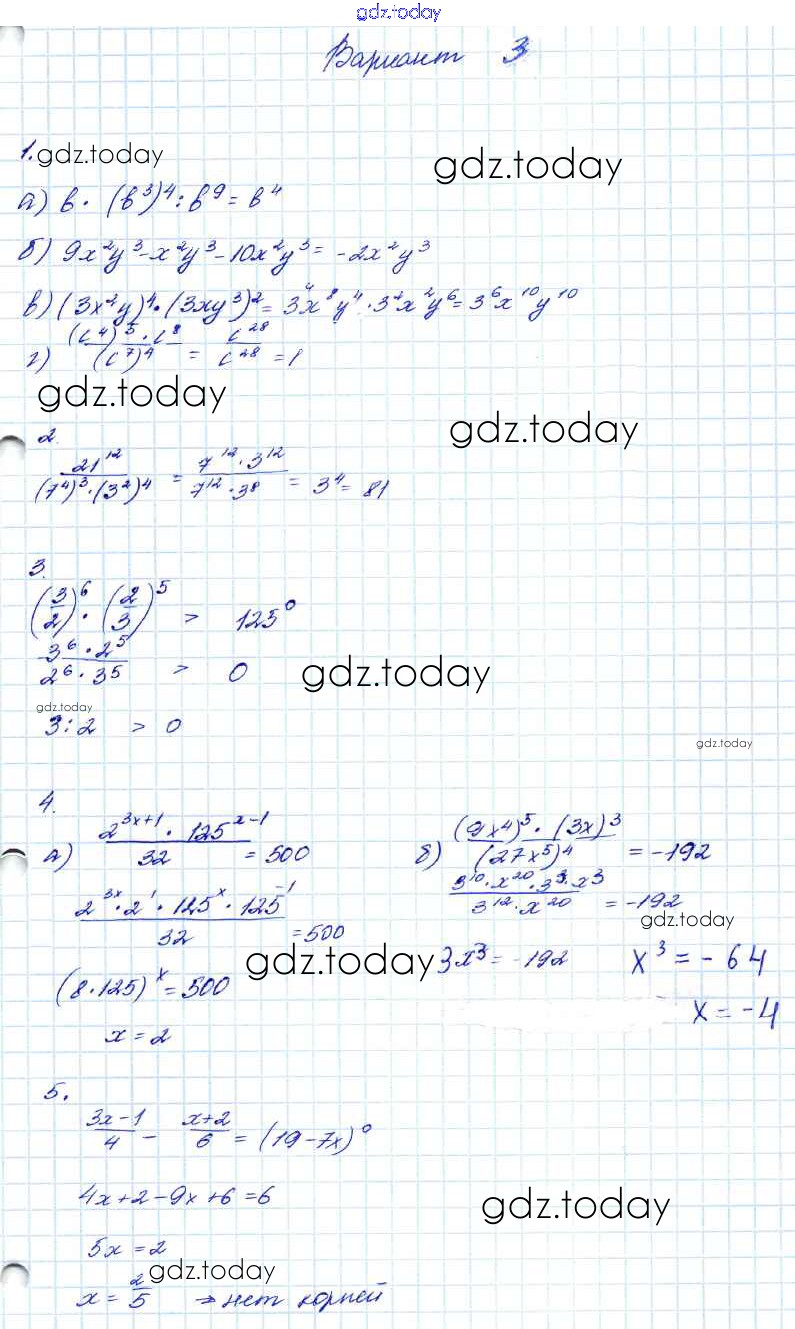 gdz.today
Вариант 3
1. gdz.today
gdz.today
а) b · (b³)⁴ : b⁹ = b⁴
б) 9x²y³ - x²y³ - 10x²y³ = -2x²y³
в) (3x²y)⁴ · (3xy³)² = 3⁴x⁸y⁴ · 3²x²y⁶ = 3⁶x¹⁰y¹⁰
г) (c⁴)⁵ · c⁸ / (c⁷)⁴ = c²⁸ / c²⁸ = 1
gdz.today
gdz.today
2.
21¹² / (7⁴)³ · (3²)⁴ = 7¹² · 3¹² / 7¹² · 3⁸ = 3⁴ = 81
3.
(3/2)⁶ · (2/3)⁵ > 125⁰
3⁶ · 2⁵ / 2⁶ · 3⁵ > 0
gdz.today
gdz.today
3 : 2 > 0
gdz.today
4.
а) 2³ˣ⁺¹ · 125ˣ⁻¹ / 32 = 500
б) (9x⁴)⁵ · (3x)³ / (27x⁵)⁴ = -192
2³ˣ · 2¹ · 125ˣ · 125⁻¹ / 32 = 500
3¹⁰ · x²⁰ · 3³ · x³ / 3¹² · x²⁰ = -192
gdz.today
gdz.today
(8 · 125)ˣ = 500
3x³ = -192
x³ = -64
x = 2
x = -4
5.
3x-1 / 4 - x+2 / 6 = (19-7x)⁰
4x+2-9x+6=6
gdz.today
5x = 2
gdz.today
x = 2/5 → нет корней